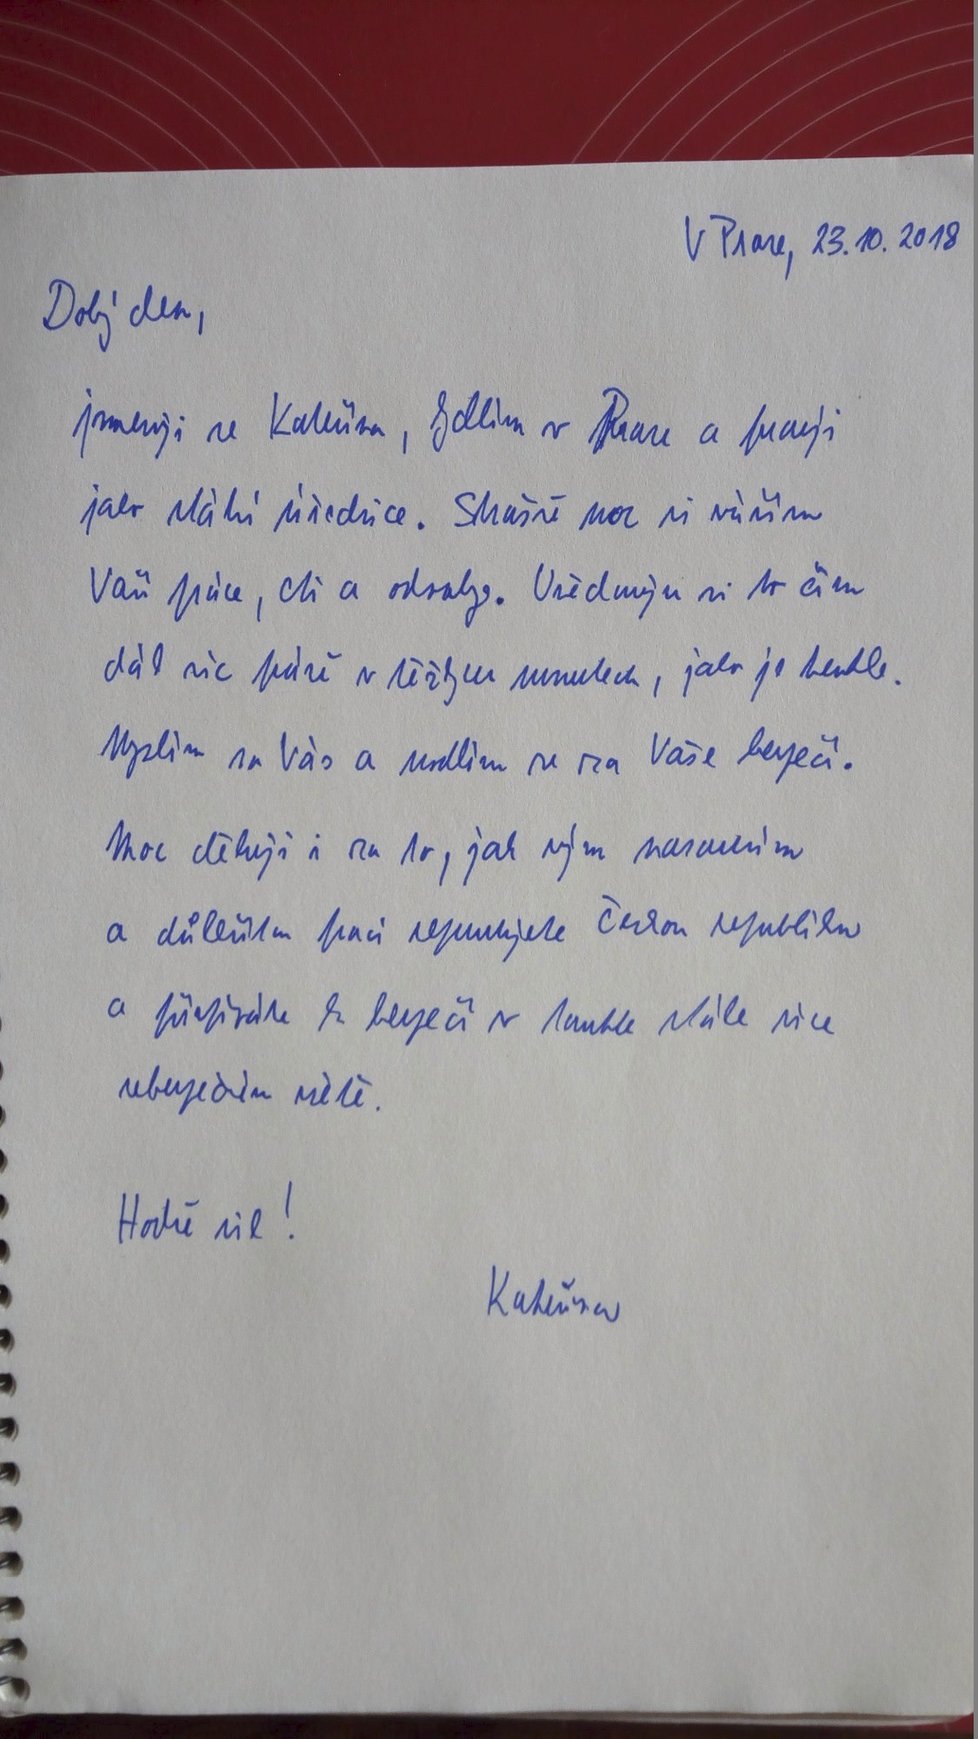 V Praze, 23.10.2018
Dobrý den,
jmenuji se Kateřina, bydlím v Praze a pracuji
jako státní úřednice. Strašně moc si vážím
Vaší práce, cti a odvahy. Uvědomuju si to čím
dál víc právě v těžkých momentech, jako je tenhle.
Myslím na Vás a modlím se za Vaše bezpečí.
Moc děkuji i za to, jak svým nasazením
a důležitou prací reprezentujete Českou republiku
a přispíváte k bezpečí v tomhle stále více
nebezpečném světě.
Hodně sil!
Kateřina